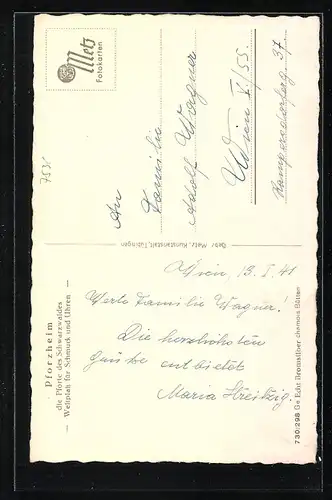 Pforzheim
die Pforte des Schwarzwaldes
— Weltplatz für Schmuck und Uhren —
Wien, 13. I. 41
Werte Familie Wagner!
Die herzlichsten
Grüße entbietet
Maria
Gebr. Metz, Kunstanstalt, Tübingen
Metz
Fotokarten
753
An
Familie
Adolf Wagner
Wien V/55.
37
730:298 Ge Echt Bromsilber chamois Bütten